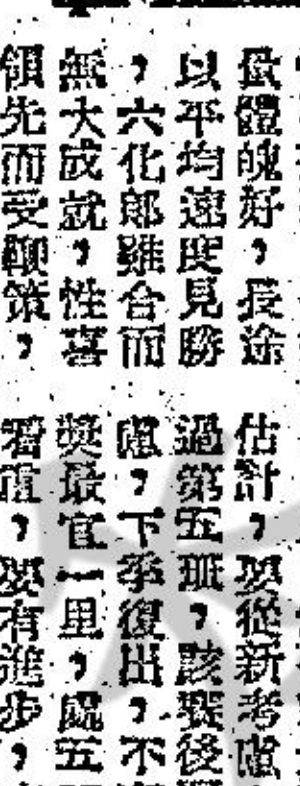 體魄好，長途
以平均速度見勝
，六化郎雖合而
無大成就，性喜
領先而受鞭策，
估計，要從新考慮
過第五班，該賽後
慮，下季復出，不
獎最宜一里，處五
着重，要有進步，